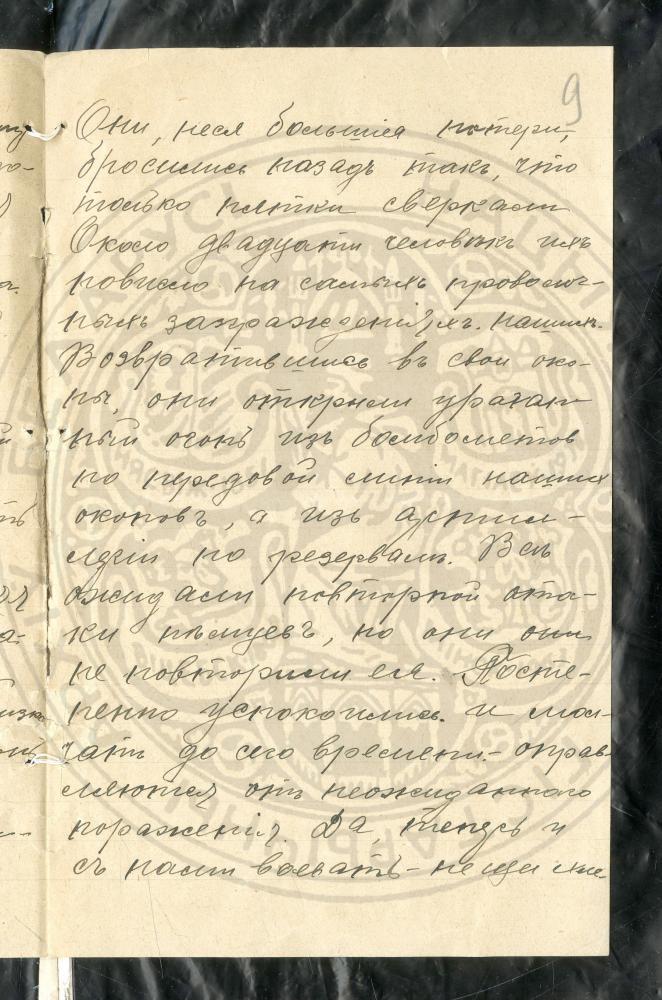 9
Они, неся большiя потери,
бросились назадъ такъ, что
только пятки сверкали
Около двадцати человѣкъ ихъ
повисло на самыхъ проволоч-
ныхъ загражденiяхъ. нашихъ.
Возвратившись въ свои око-
пы, они открыли ураган-
ный огонь изъ бомбометовъ
по передовой линiи нашихъ
окоповъ, а изъ артил-
лерiи по резервамъ. Всѣ
ожидали повторной ата-
ки нѣмцевъ, но они
не повторили ея. Посте-
пенно успокоились. и мол-
чатъ до сего времени.- оправ-
ляются отъ неожиданного
пораженiя. Да, теперь и
съ нами воевать - не щи